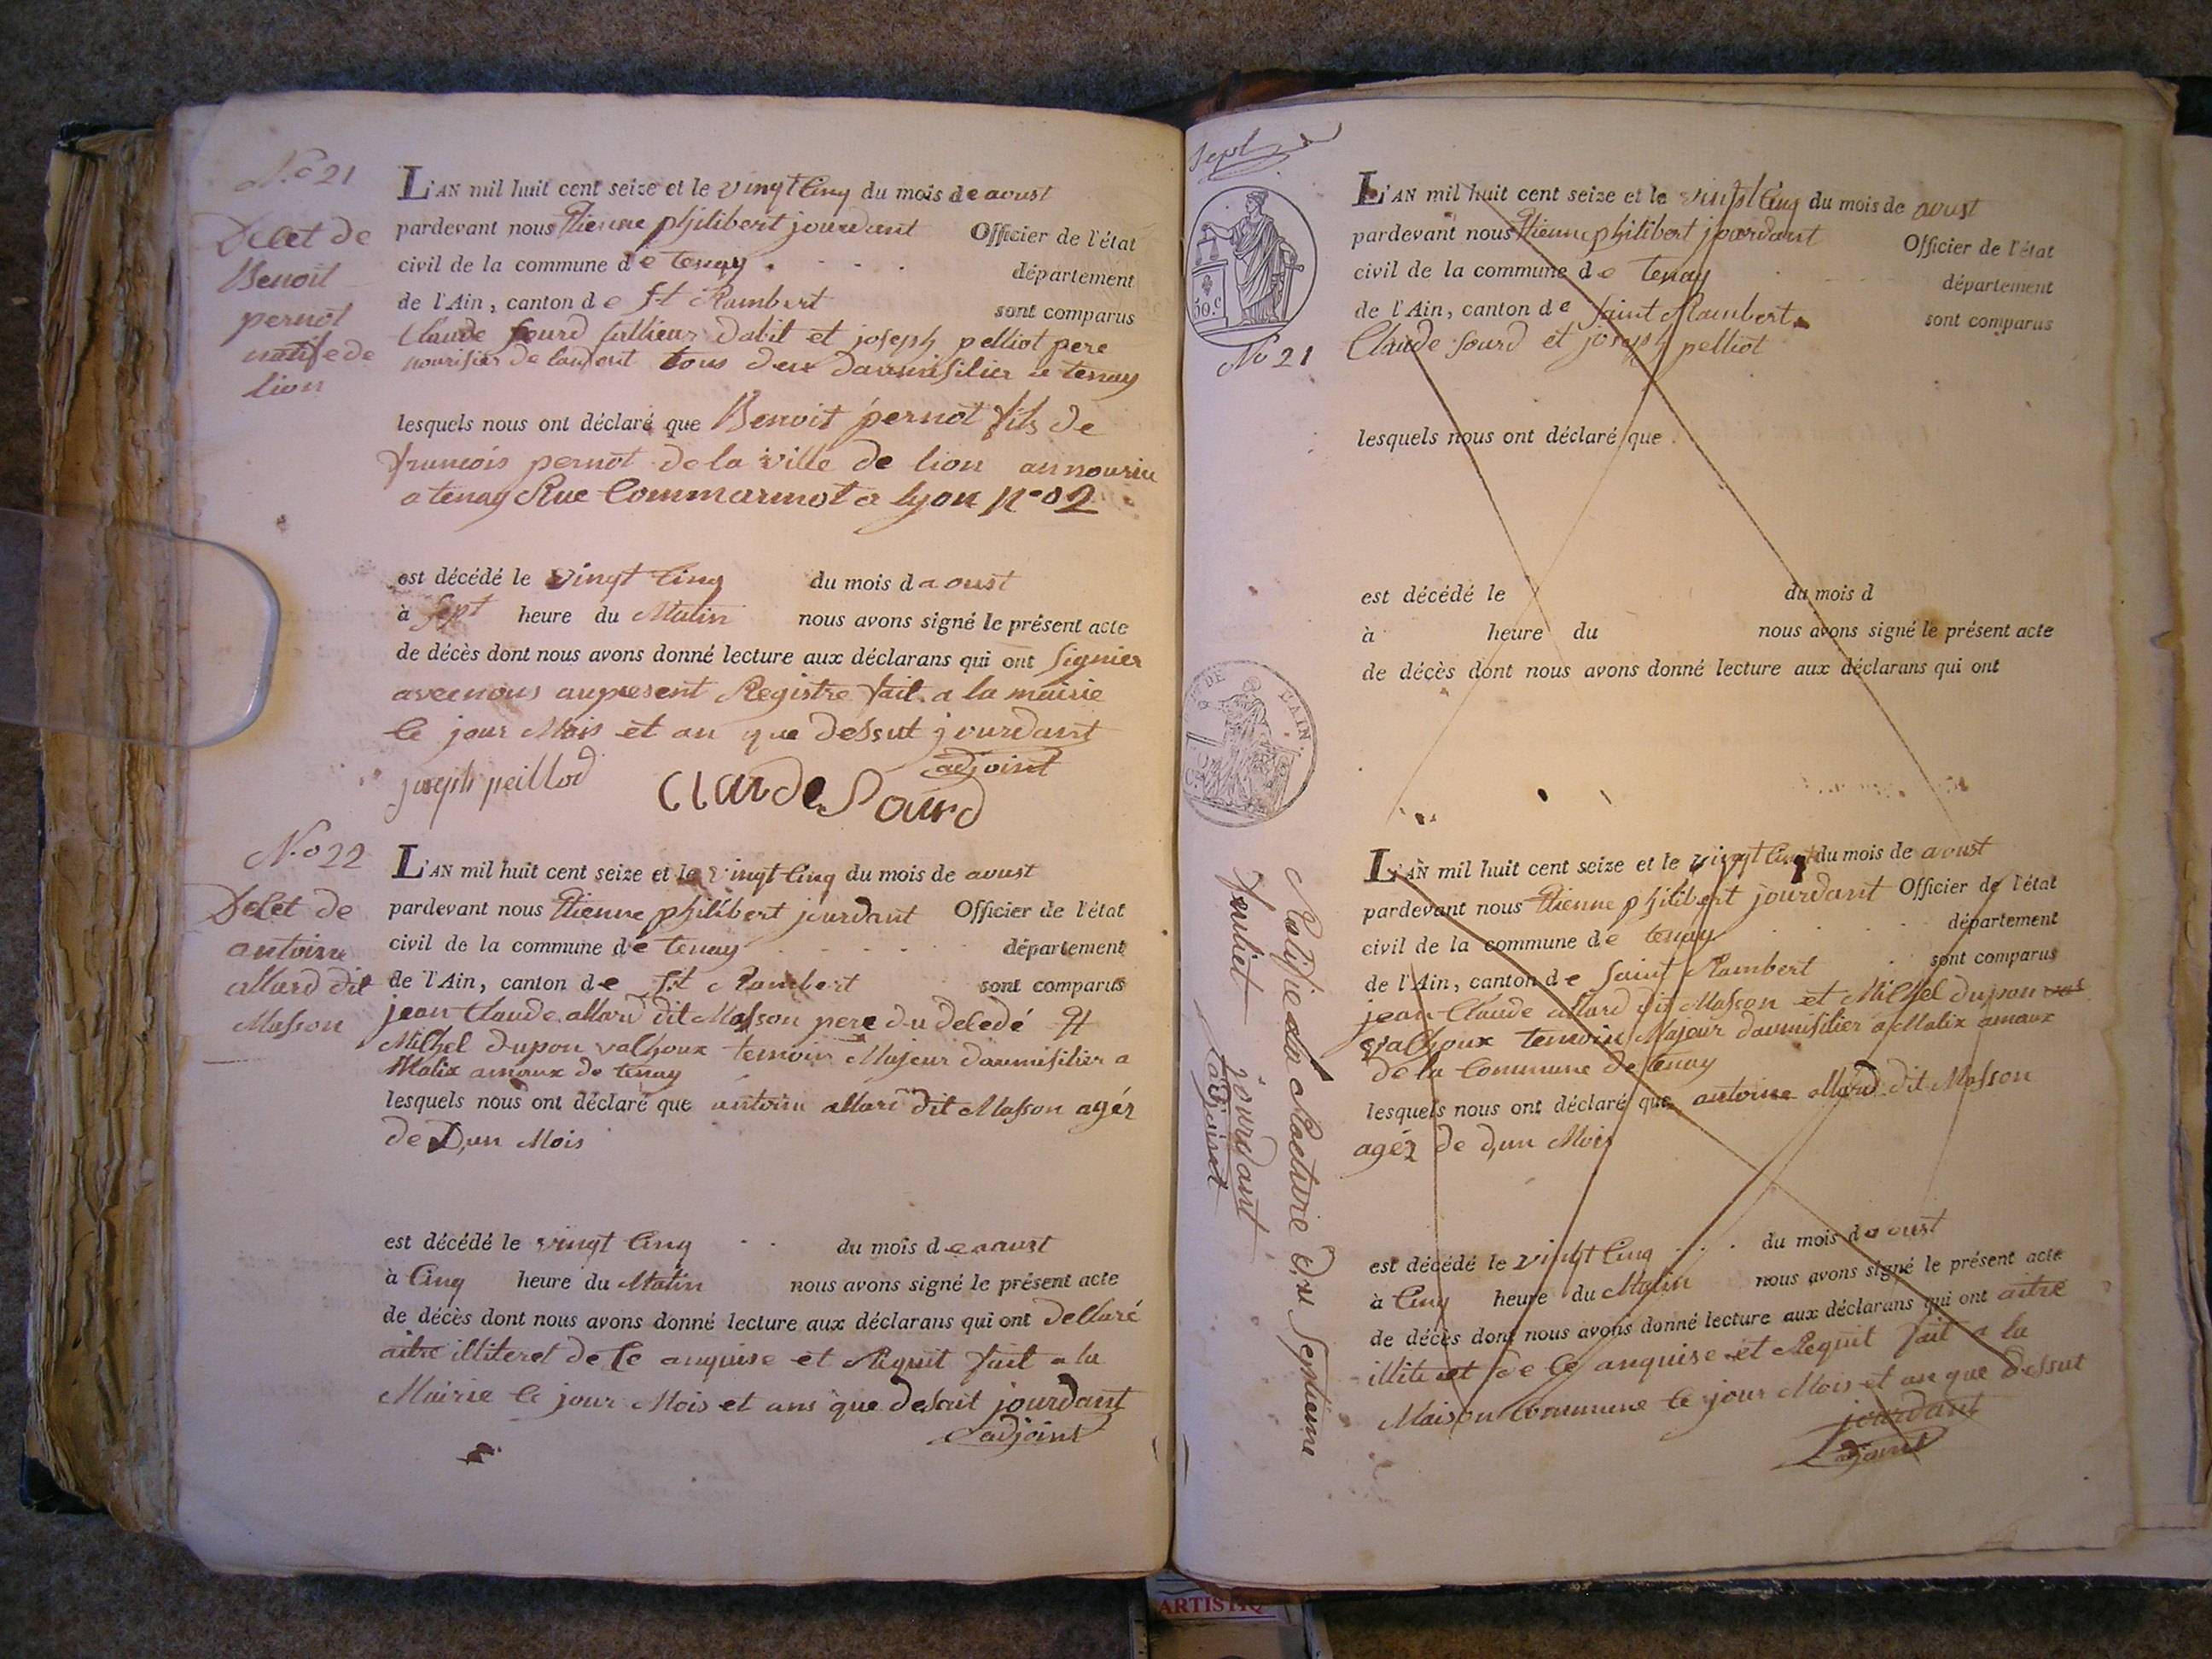 N.o 21
Decet de
Benoit
pernot
natife de
lion
L'AN mil huit cent seize et le vingt Cinq du mois de aoust
pardevant nous Etienne philibert jourdant Officier de l'état
civil de la commune de tenay . département
de l'Ain, canton de st Rambert sont comparus
Claude Sourd Dabit et joseph pelliot pere
nourisier de lanfent tous deux daumisilier a tenay
lesquels nous ont déclaré que Benoit pernot fils de
francois pernot de la ville de lion annourice
a tenay Rue Commarmot a lyon no 2
est décédé le vingt Cinq du mois d aoust
à sept heure du Matin nous avons signé le présent acte
de décès dont nous avons donné lecture aux déclarans qui ont signier
avec nous aupresent Registre fait a la mairie
le jour Mois et an que dessut jourdant
adjoint
joseph peillod Claude Sourd
N.o 22
Decet de
antoine
allard dit
Masson
L'AN mil huit cent seize et le vingt Cinq du mois de aoust
pardevant nous Etienne philibert jourdant Officier de l'état
civil de la commune de tenay département
de l'Ain, canton de st Rambert sont comparus
jean Claude allard dit Masson pere du decedé et
Michel dupon vachoux temoin Majeur daumisilier a
Malix amaux de tenay
lesquels nous ont déclaré que antoine allard dit Masson agér
de D,un Mois
est décédé le vingt Cinq du mois de aoust
à Cinq heure du Matin nous avons signé le présent acte
de décès dont nous avons donné lecture aux déclarans qui ont déclaré
aitre illiteret de Ce anquise et Requit fait a la
Mairie le jour Mois et ans que desait jourdant
adjoint
Sept
50.c
No 21
L'AN mil huit cent seize et le vingt Cinq du mois de aoust
pardevant nous Etienne philibert jourdant Officier de l'état
civil de la commune de tenay département
de l'Ain, canton de saint Rambert sont comparus
Claude Sourd et joseph pelliot
lesquels nous ont déclaré que
est décédé le du mois d
à heure du nous avons signé le présent acte
de décès dont nous avons donné lecture aux déclarans qui ont
DE L'AIN.
Ratifie la Rature du Septieme
feuliet jourdant
adjoint
L'AN mil huit cent seize et le vingt Cinq du mois de aoust
pardevant nous Etienne philibert jourdant Officier de l'état
civil de la commune de tenay département
de l'Ain, canton de saint Rambert sont comparus
jean Claude allard dit Masson et Michel dupon vac
vachoux temoin Majeur daumisilier a Malix amaux
de la Commune de tenay
lesquels nous ont déclaré que antoine allard dit Masson
agér de d,un Mois
est décédé le vingt Cinq . . . du mois d aoust
à Cinq heure du Matin nous avons signé le présent acte
de décès dont nous avons donné lecture aux déclarans qui ont aitre
illiteret de Ce anquise et Requit fait a la
Maison Commune le jour Mois et an que dessut
jourdant
adjoint
ARTISTIQ